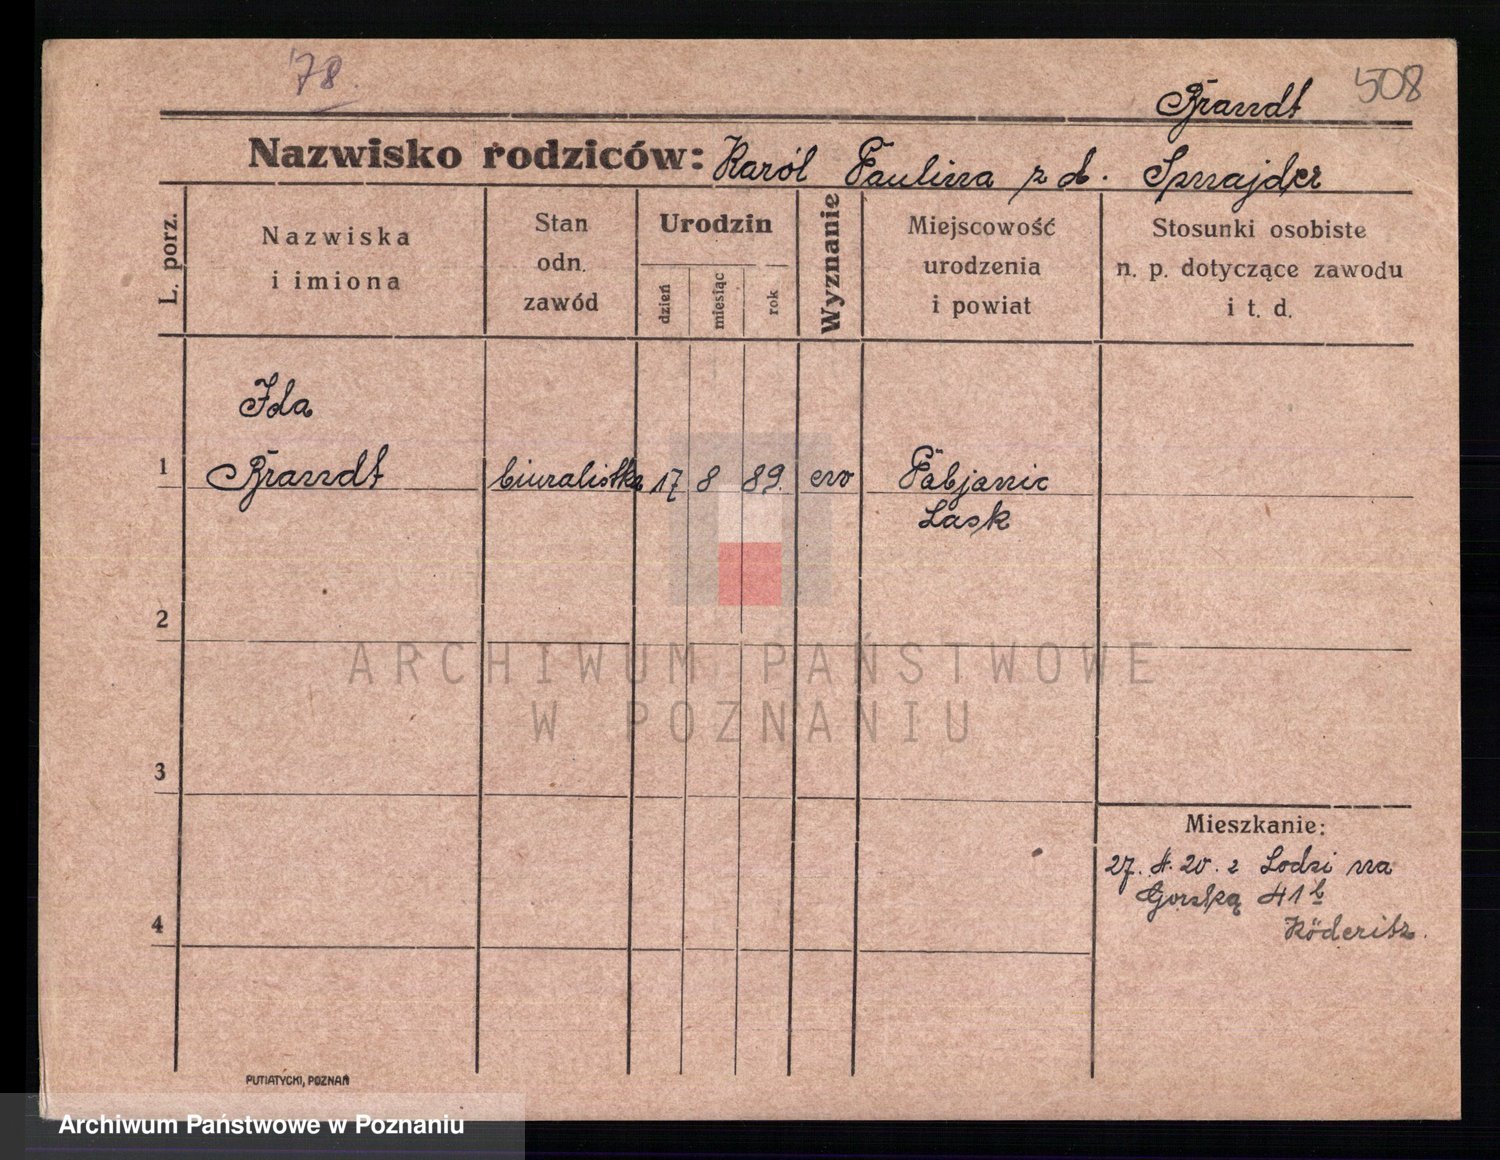 78.
508
Brandt
Nazwisko rodziców: Karól Paulina z d. Sznajder
L. porz.
Nazwiska
i imiona
Stan
odn.
zawód
Urodzin
dzień
miesiąc
rok
Wyznanie
Miejscowość
urodzenia
i powiat
Stosunki osobiste
n. p. dotyczące zawodu
i t. d.
Ida
1 Brandt biuralistka 17 8 89. ew Pabjanic
Lask
2
3
4
Mieszkanie:
27. 4. 20. z Lodzi na
Gorską 41 b
Köderitz.
PUTIATYCKI, POZNAŃ
ARCHIWUM PAŃSTWOWE
W POZNANIU
Archiwum Państwowe w Poznaniu